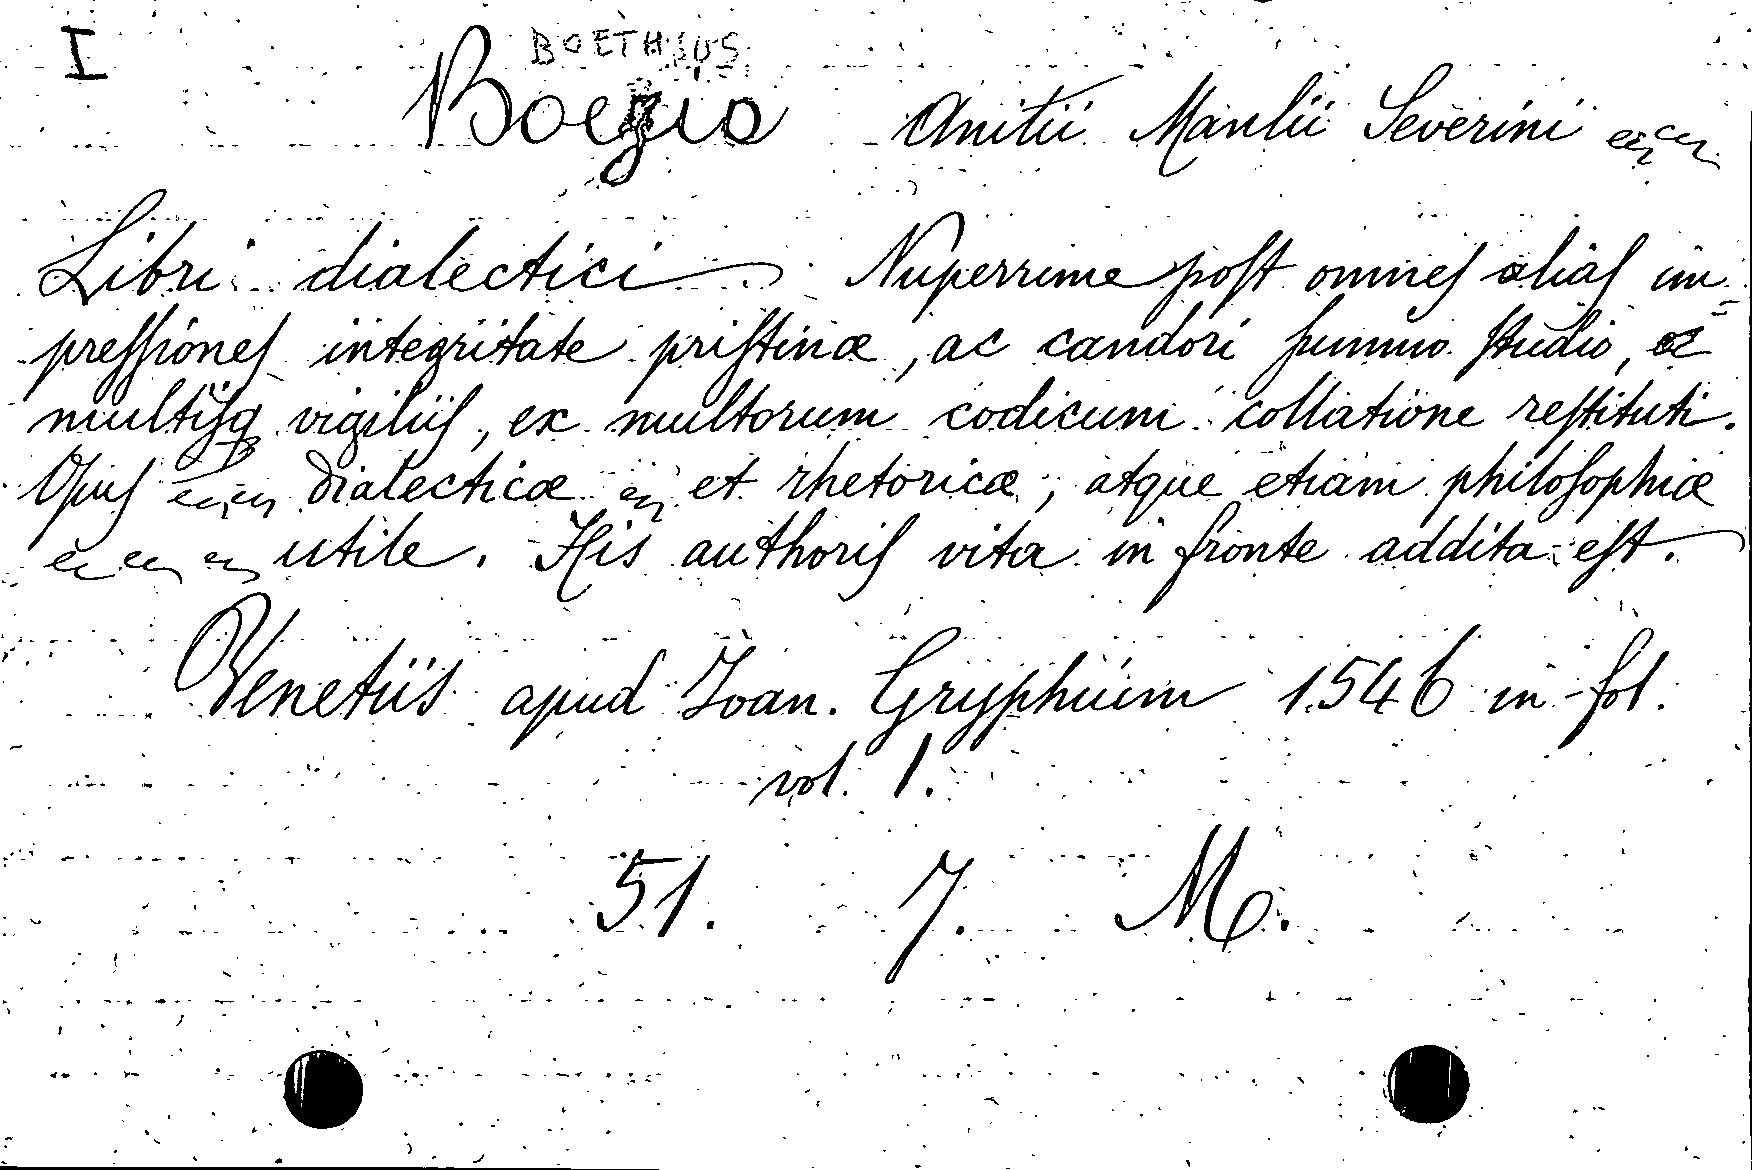 I
BOETHIUS
Boezio Anitii Manlii Severini
Libri dialectici. Nuperrime poſt omneſ aliaſ im=
preſſioneſ integritate priſtinæ, ac candori ſummo ſtudio, ac
multiſq vigiliiſ, ex multorum codicum collatione reſtituti.
Opuſ dialecticæ et rhetoricæ, atque etiam philoſophiæ
utile. His authoriſ vita in fronte addita eſt.
Venetiis apud Ioan. Gryphium 1546 in fol.
vol. 1.
51. 7. M.